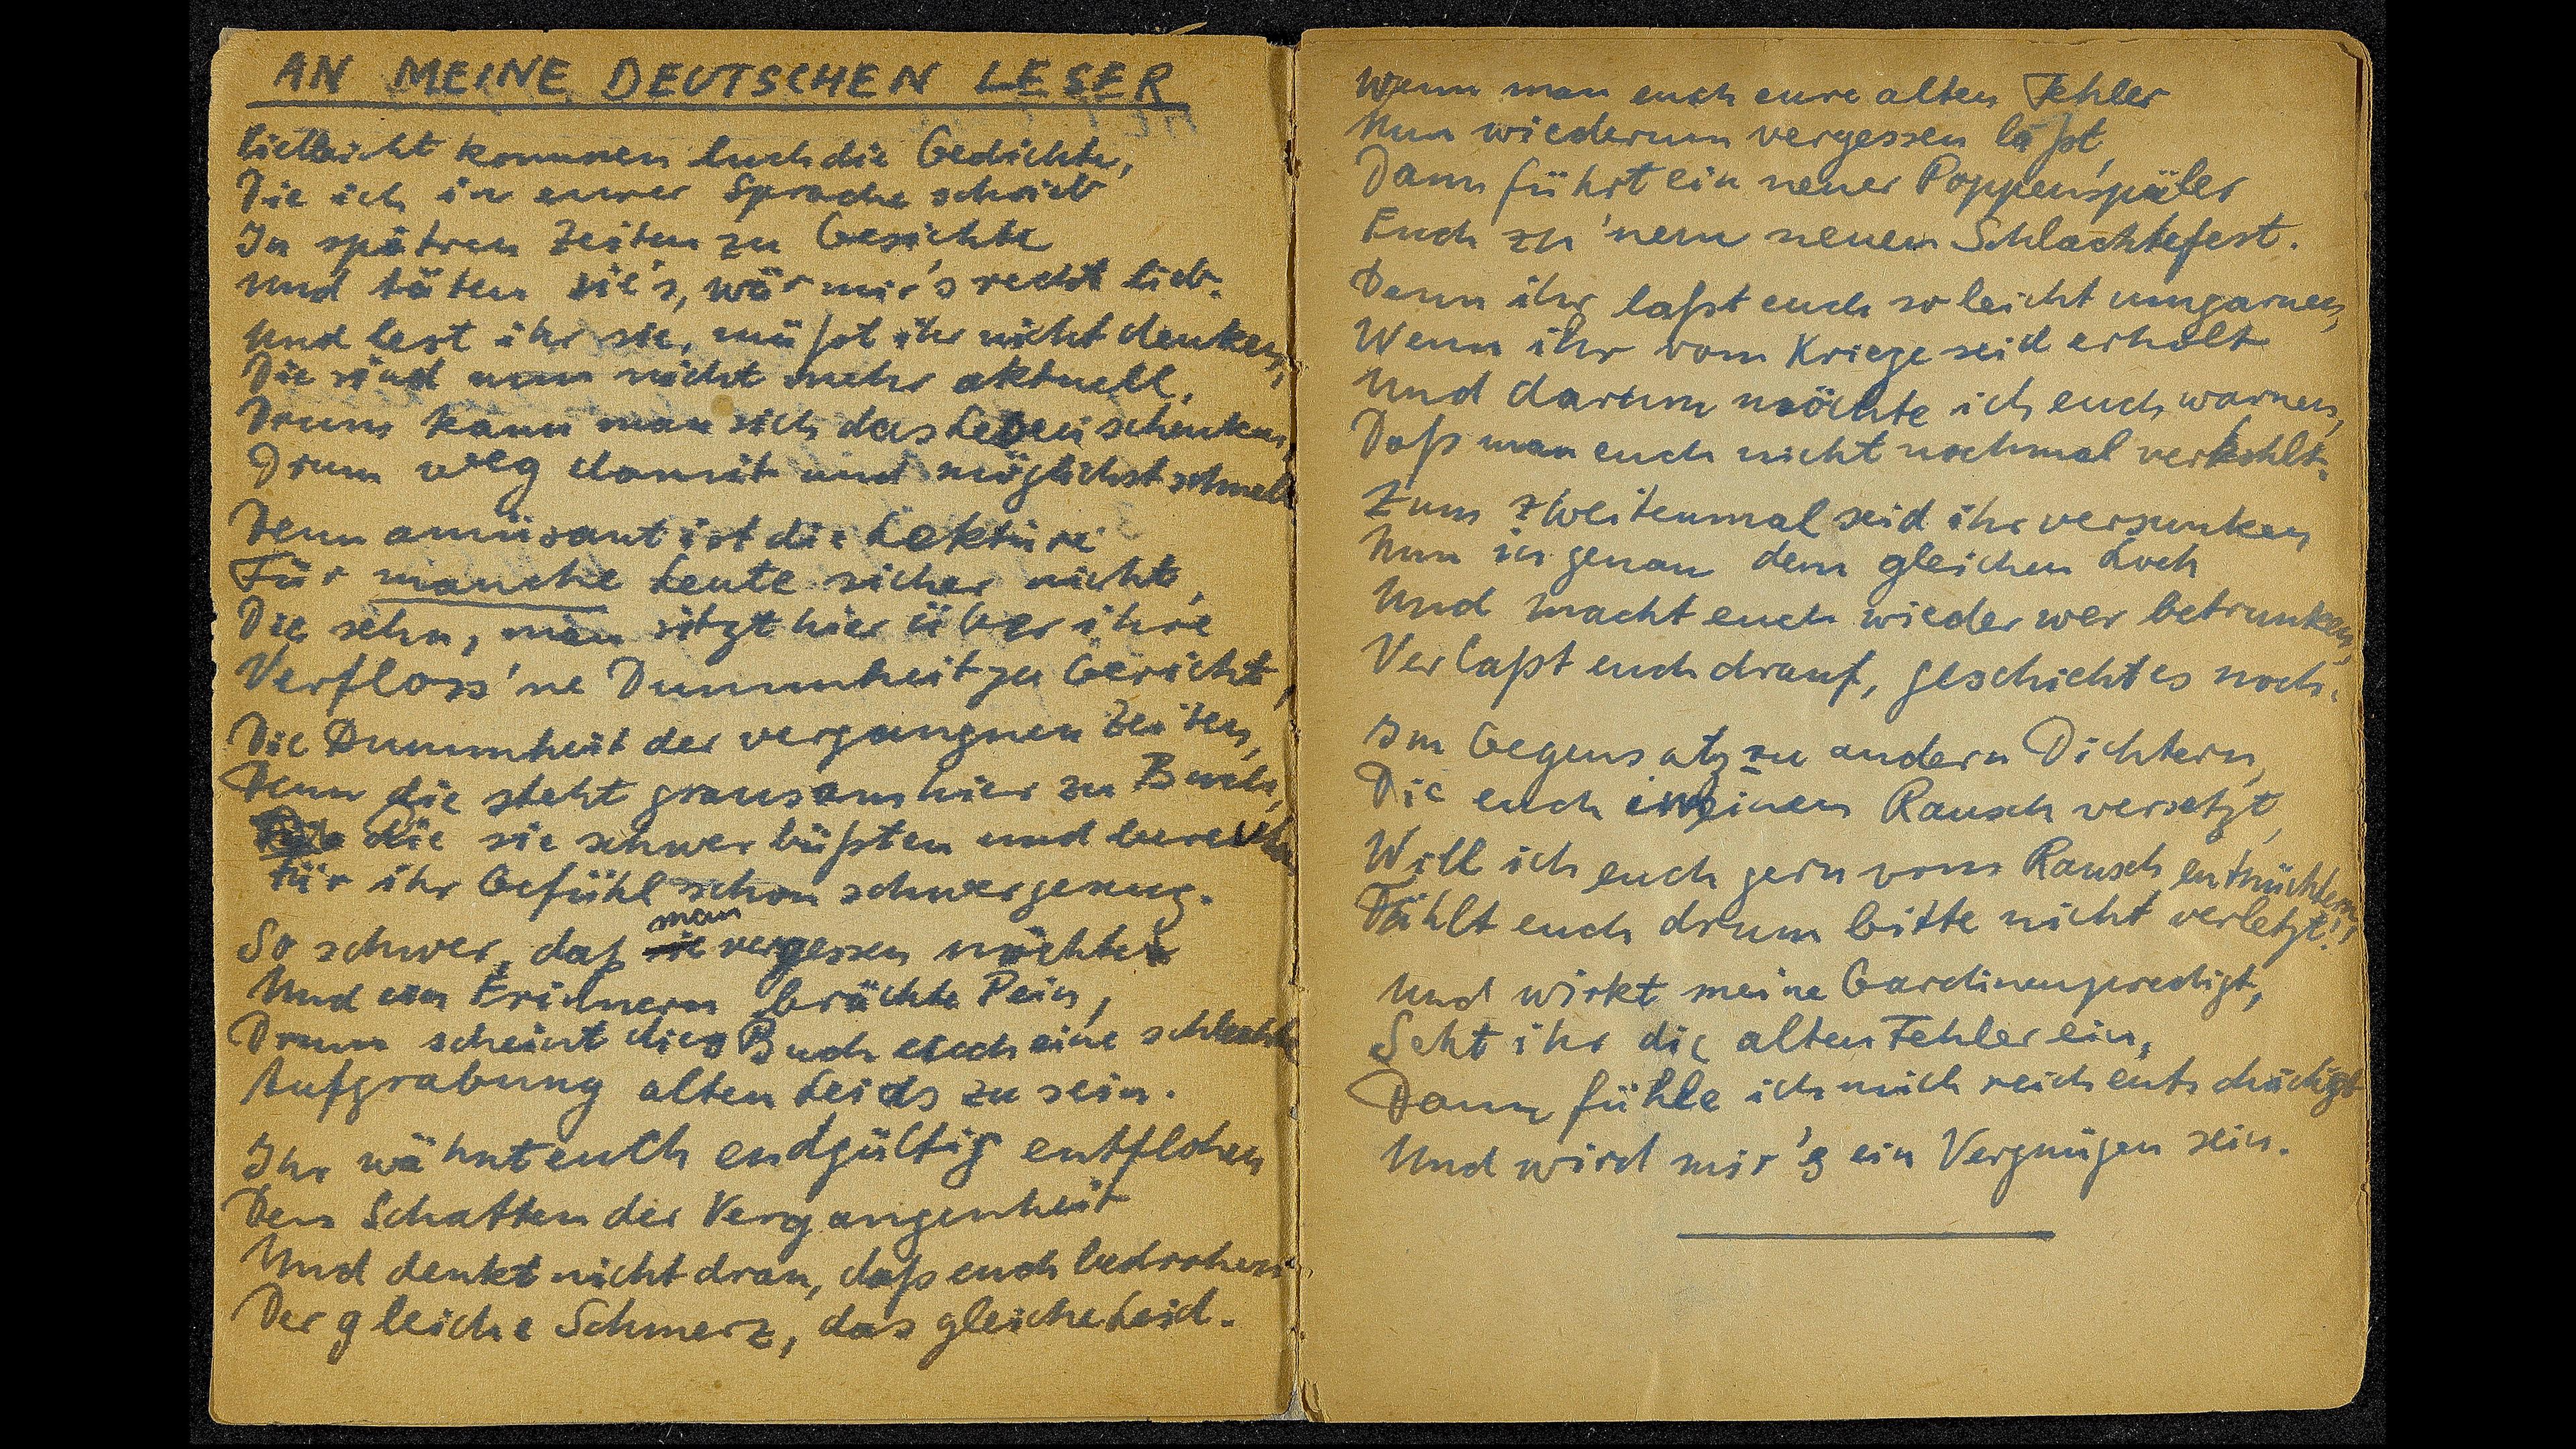 AN MEINE DEUTSCHEN LESER
Vielleicht kommen Euch die Gedichte,
Die ich in eurer Sprache schrieb
In spätren Zeiten zu Gesichte
Und täten sie's, wär mir's recht lieb.
Und lest ihr sie, müßt ihr nicht denken,
Die sind nun nicht mehr aktuell,
Drum kann man sich das Lesen schenken,
Drum weg damit und möglichst schnell
Denn amüsant ist die Lektüre
Für manche Leute sicher nicht,
Die sehn, man sitzt hier über ihre
Verfloss'ne Dummheit zu Gericht,
Die Dummheit der vergangnen Zeiten,
Denn die steht grausam hier zu Buch,
die sie schwer büßten und bereuten
Für ihr Gefühl schon schwer genug.
So schwer, daß man vergessen möchte
Und ein Erinnern brächte Pein,
Drum scheint dies Buch euch eine schlechte
Aufgrabung alten Leids zu sein.
Ihr wähnt euch endgültig entflohen
Dem Schatten der Vergangenheit
Und denkt nicht dran, daß euch bedrohen
Der gleiche Schmerz, das gleiche Leid.
Wenn man euch eure alten Fehler
Nun wiederum vergessen läßt,
Dann führt ein neuer Poppenspäler
Euch zu 'nem neuen Schlachtefest.
Denn ihr laßt euch so leicht umgarnen,
Wenn ihr vom Kriege seid erholt
Und darum möchte ich euch warnen,
Daß man euch nicht nochmal verkohlt.
Zum zweitenmal seid ihr versunken
Nun in genau dem gleichen Loch
Und macht euch wieder wer betrunken,
Verlaßt euch drauf, geschieht es noch.
Im Gegensatz zu andern Dichtern,
Die euch in einen Rausch versetzt,
Will ich euch gern vom Rausch entnüchtern,
Fühlt euch drum bitte nicht verletzt!!
Und wirkt meine Gardinenpredigt,
Seht ihr die alten Fehler ein,
Dann fühle ich mich reich entschädigt
Und wird mir's ein Vergnügen sein.